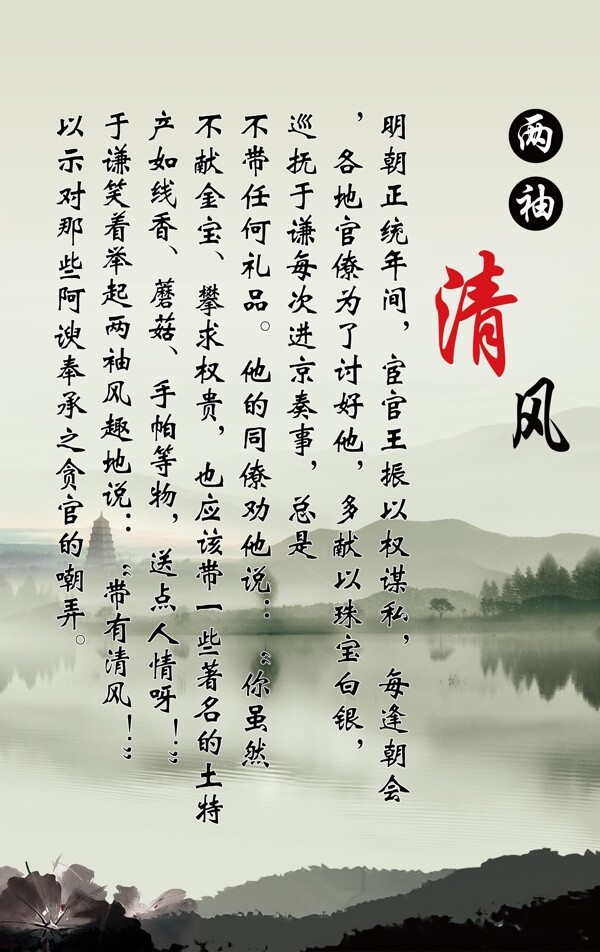 两袖清风
明朝正统年间，宦官王振以权谋私，每逢朝会
，各地官僚为了讨好他，多献以珠宝白银，
巡抚于谦每次进京奏事，总是
不带任何礼品。他的同僚劝他说：“你虽然
不献金宝、攀求权贵，也应该带一些著名的土特
产如线香、蘑菇、手帕等物，送点人情呀！”
于谦笑着举起两袖风趣地说：“带有清风！”
以示对那些阿谀奉承之贪官的嘲弄。